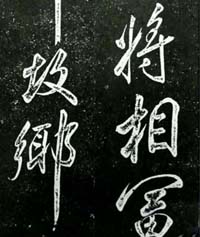 将相富
故鄉